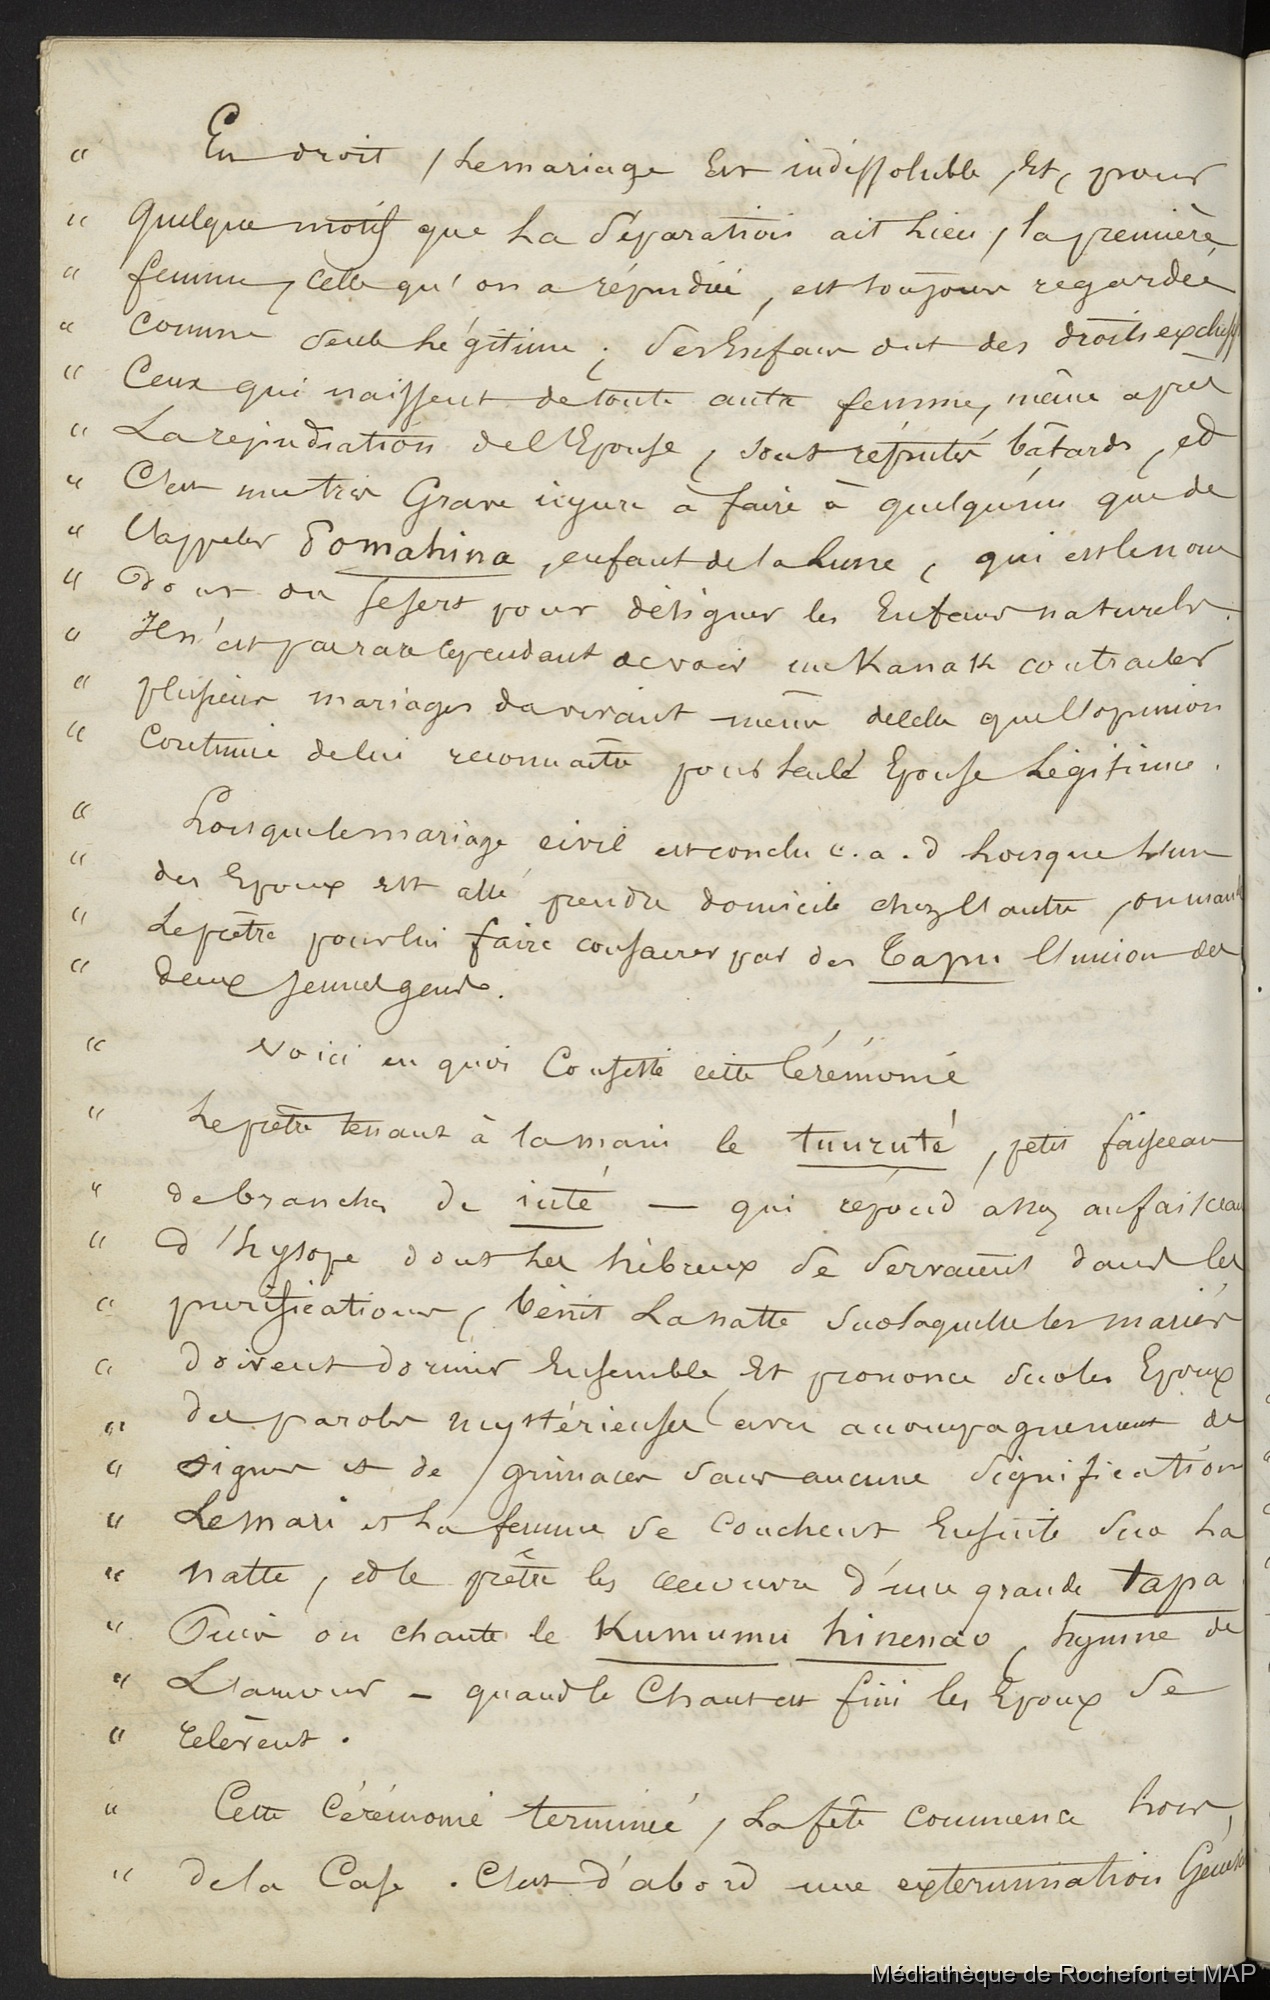 " En droit, Le mariage Est indissoluble, Et, pour
" quelque motif que La Séparation ait Lieu, la première
" femme, celle qu'on a répudiée, est toujours regardée
" Comme Seule Légitime ; Ses Enfans ont des droits exclusifs
" Ceux qui naissent de toute autre femme, même après
" La répudiation de l'Epouse, sont réputés bâtards, et
" C'est une très Grave injure à faire à quelqu'un que de
" l'appeler Tomahina, enfant de la Lune, qui est le nom
" dont on se sert pour désigner les Enfans naturels.
" Il n'est pas rare cependant de voir un Kanak contracter
" plusieurs mariages du vivant même de celle que l'opinion
" Continue de lui reconnaitre pour Seule Epouse Légitime.
" Lorsque le mariage civil est conclu c.a.d Lorsque L'un
" des Epoux est allé prendre domicile chez l'autre, on mande
" Le prêtre pour lui faire consacrer par des Tapu l'union des
" deux jeunes gens.
" Voici en quoi Consiste cette Cérémonie
" Le prêtre tenant à la main le tuuruté, petit faisceau
" de branches de iuté — qui répond assez au faisceau
" d'hysope dont Les hébreux Se Servaient dans les
" purifications, bénit La natte Sur laquelle les mariés
" doivent dormir Ensemble, Et prononce Sur les Epoux
" des paroles mystérieuses avec accompagnement de
" Signes et de grimaces Sans aucune Signification
" Le mari et La femme Se Couchent Ensuite Sur La
" natte, et le prêtre les recouvre d'une grande tapa
" Puis on chante le Kumumu hinenao, hymne de
" L'amour – quand le Chant est fini les Epoux Se
" relèvent.
" Cette Cérémonie terminée, La fête commence hors
" de la Case. C'est d'abord une extermination Généra
Médiathèque de Rochefort et MAP